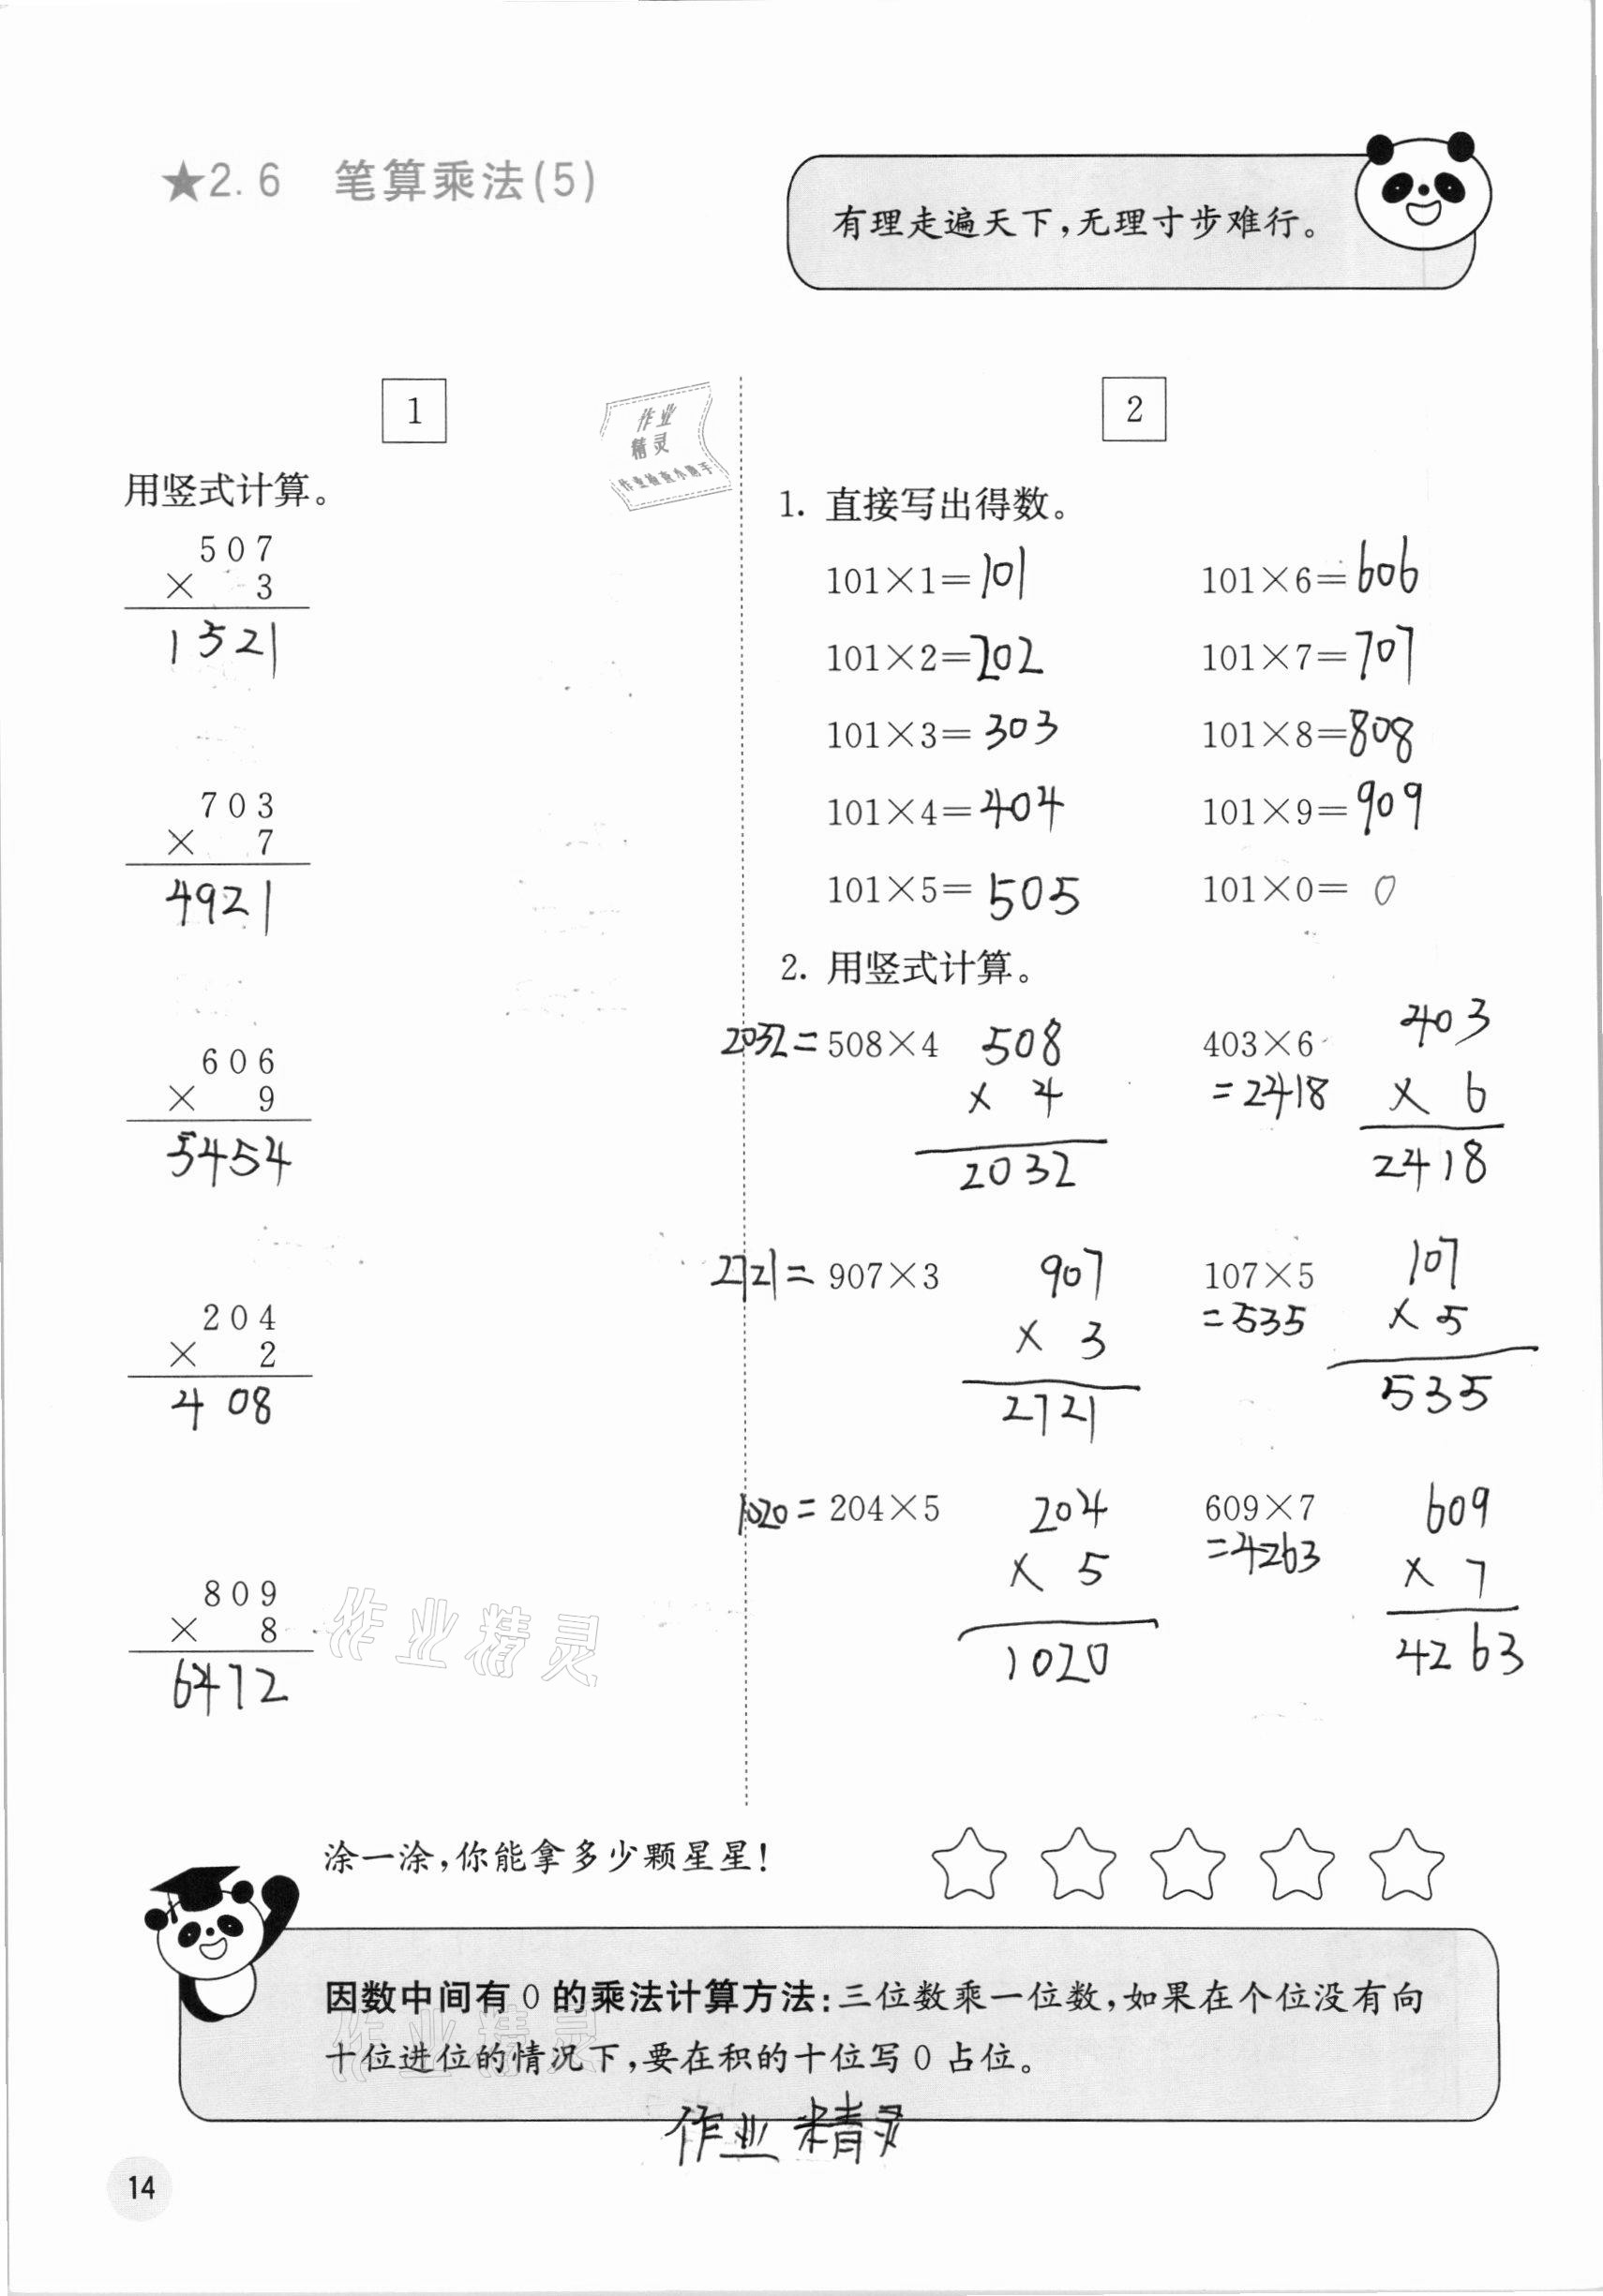 ★2.6 笔算乘法(5)
有理走遍天下,无理寸步难行。
1
作业
精灵
作业检查小助手
用竖式计算。
507
× 3
1521
703
× 7
4921
606
× 9
5454
204
× 2
408
809
× 8
6472
作业精灵
2
1. 直接写出得数。
101×1=101 101×6=606
101×2=202 101×7=707
101×3=303 101×8=808
101×4=404 101×9=909
101×5=505 101×0=0
2. 用竖式计算。
2032=508×4
508
× 4
2032
403×6
=2418
403
× 6
2418
2721=907×3
907
× 3
2721
107×5
=535
107
× 5
535
1020=204×5
204
× 5
1020
609×7
=4263
609
× 7
4263
涂一涂,你能拿多少颗星星!
因数中间有0的乘法计算方法:三位数乘一位数,如果在个位没有向
十位进位的情况下,要在积的十位写0占位。
作业精灵
作业精灵
14